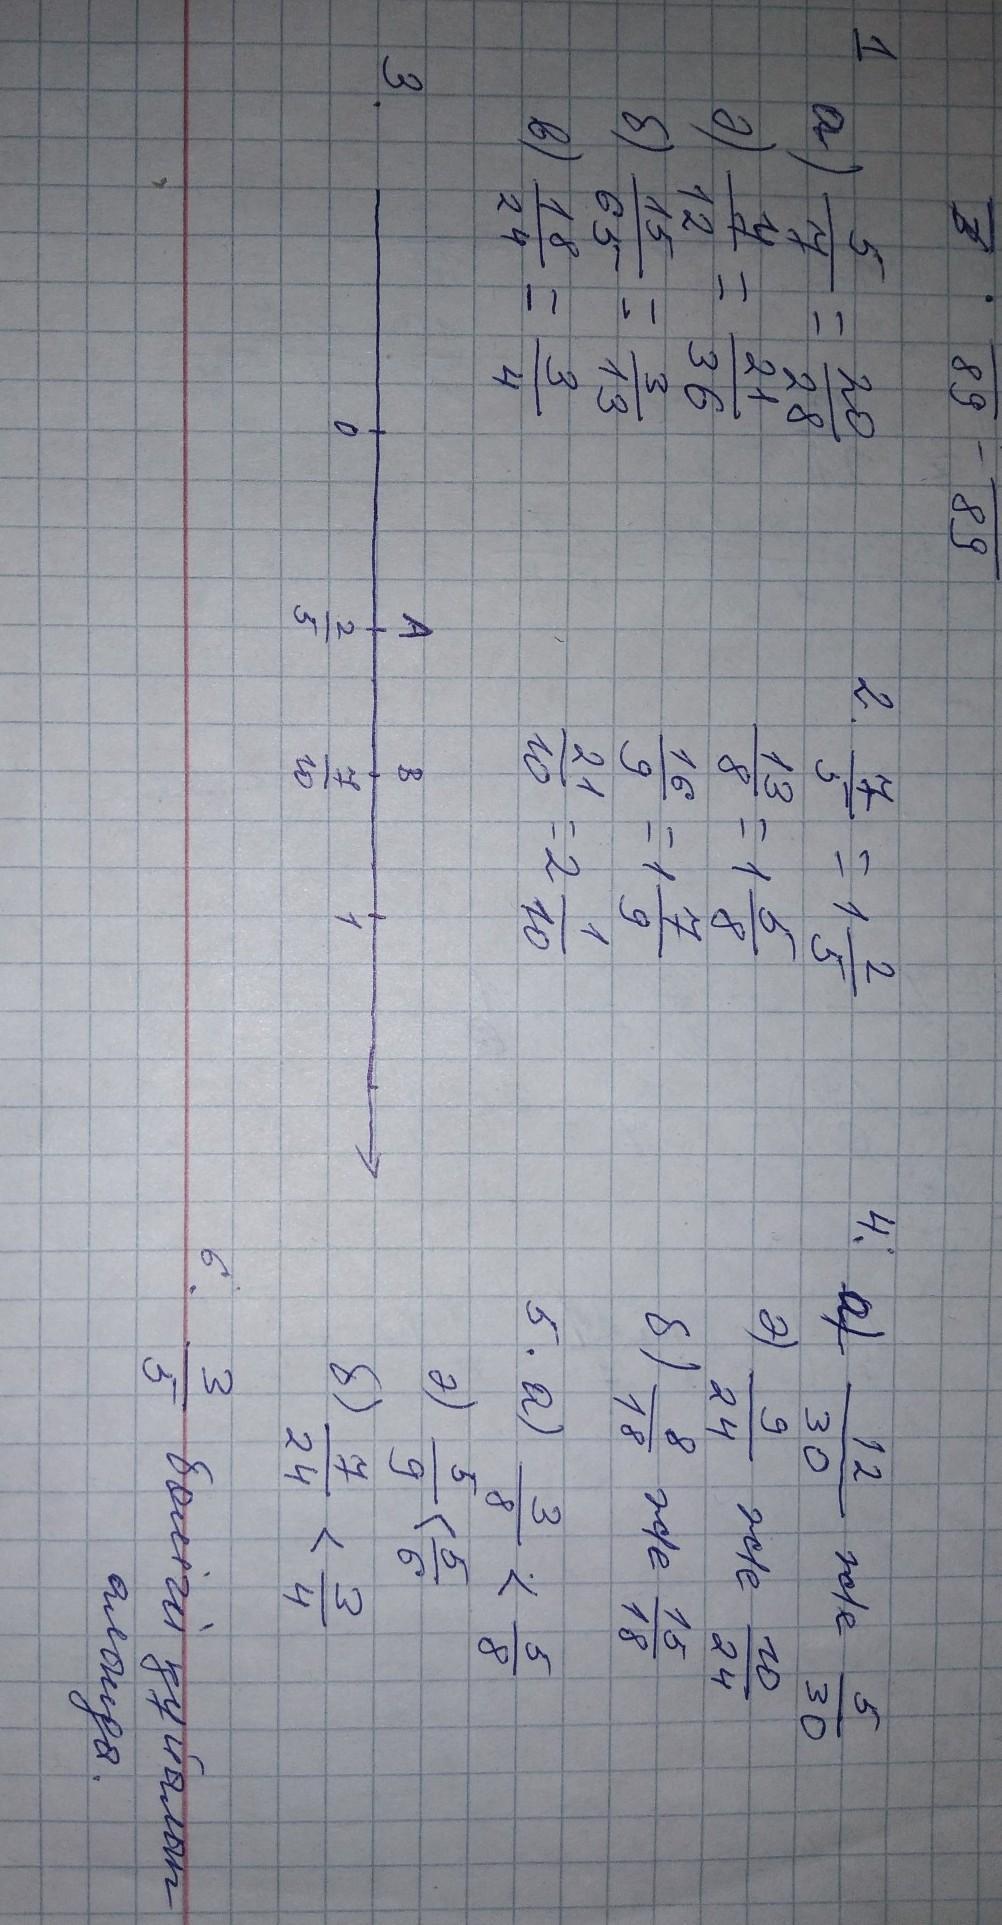 1
а) 5/7 = 20/28
ә) 7/12 = 21/36
б) 15/65 = 3/13
в) 18/24 = 3/4
2. 7/5 = 1 2/5
13/8 = 1 5/8
16/9 = 1 7/9
21/10 = 2 1/10
3.
A B
0 2/5 7/10 1
4. а) 12/30 және 5/30
ә) 9/24 және 10/24
б) 8/18 және 15/18
5. а) 3/8 < 5/8
ә) 5/9 < 5/6
б) 7/24 < 3/4
6. 3/5 бөлігі